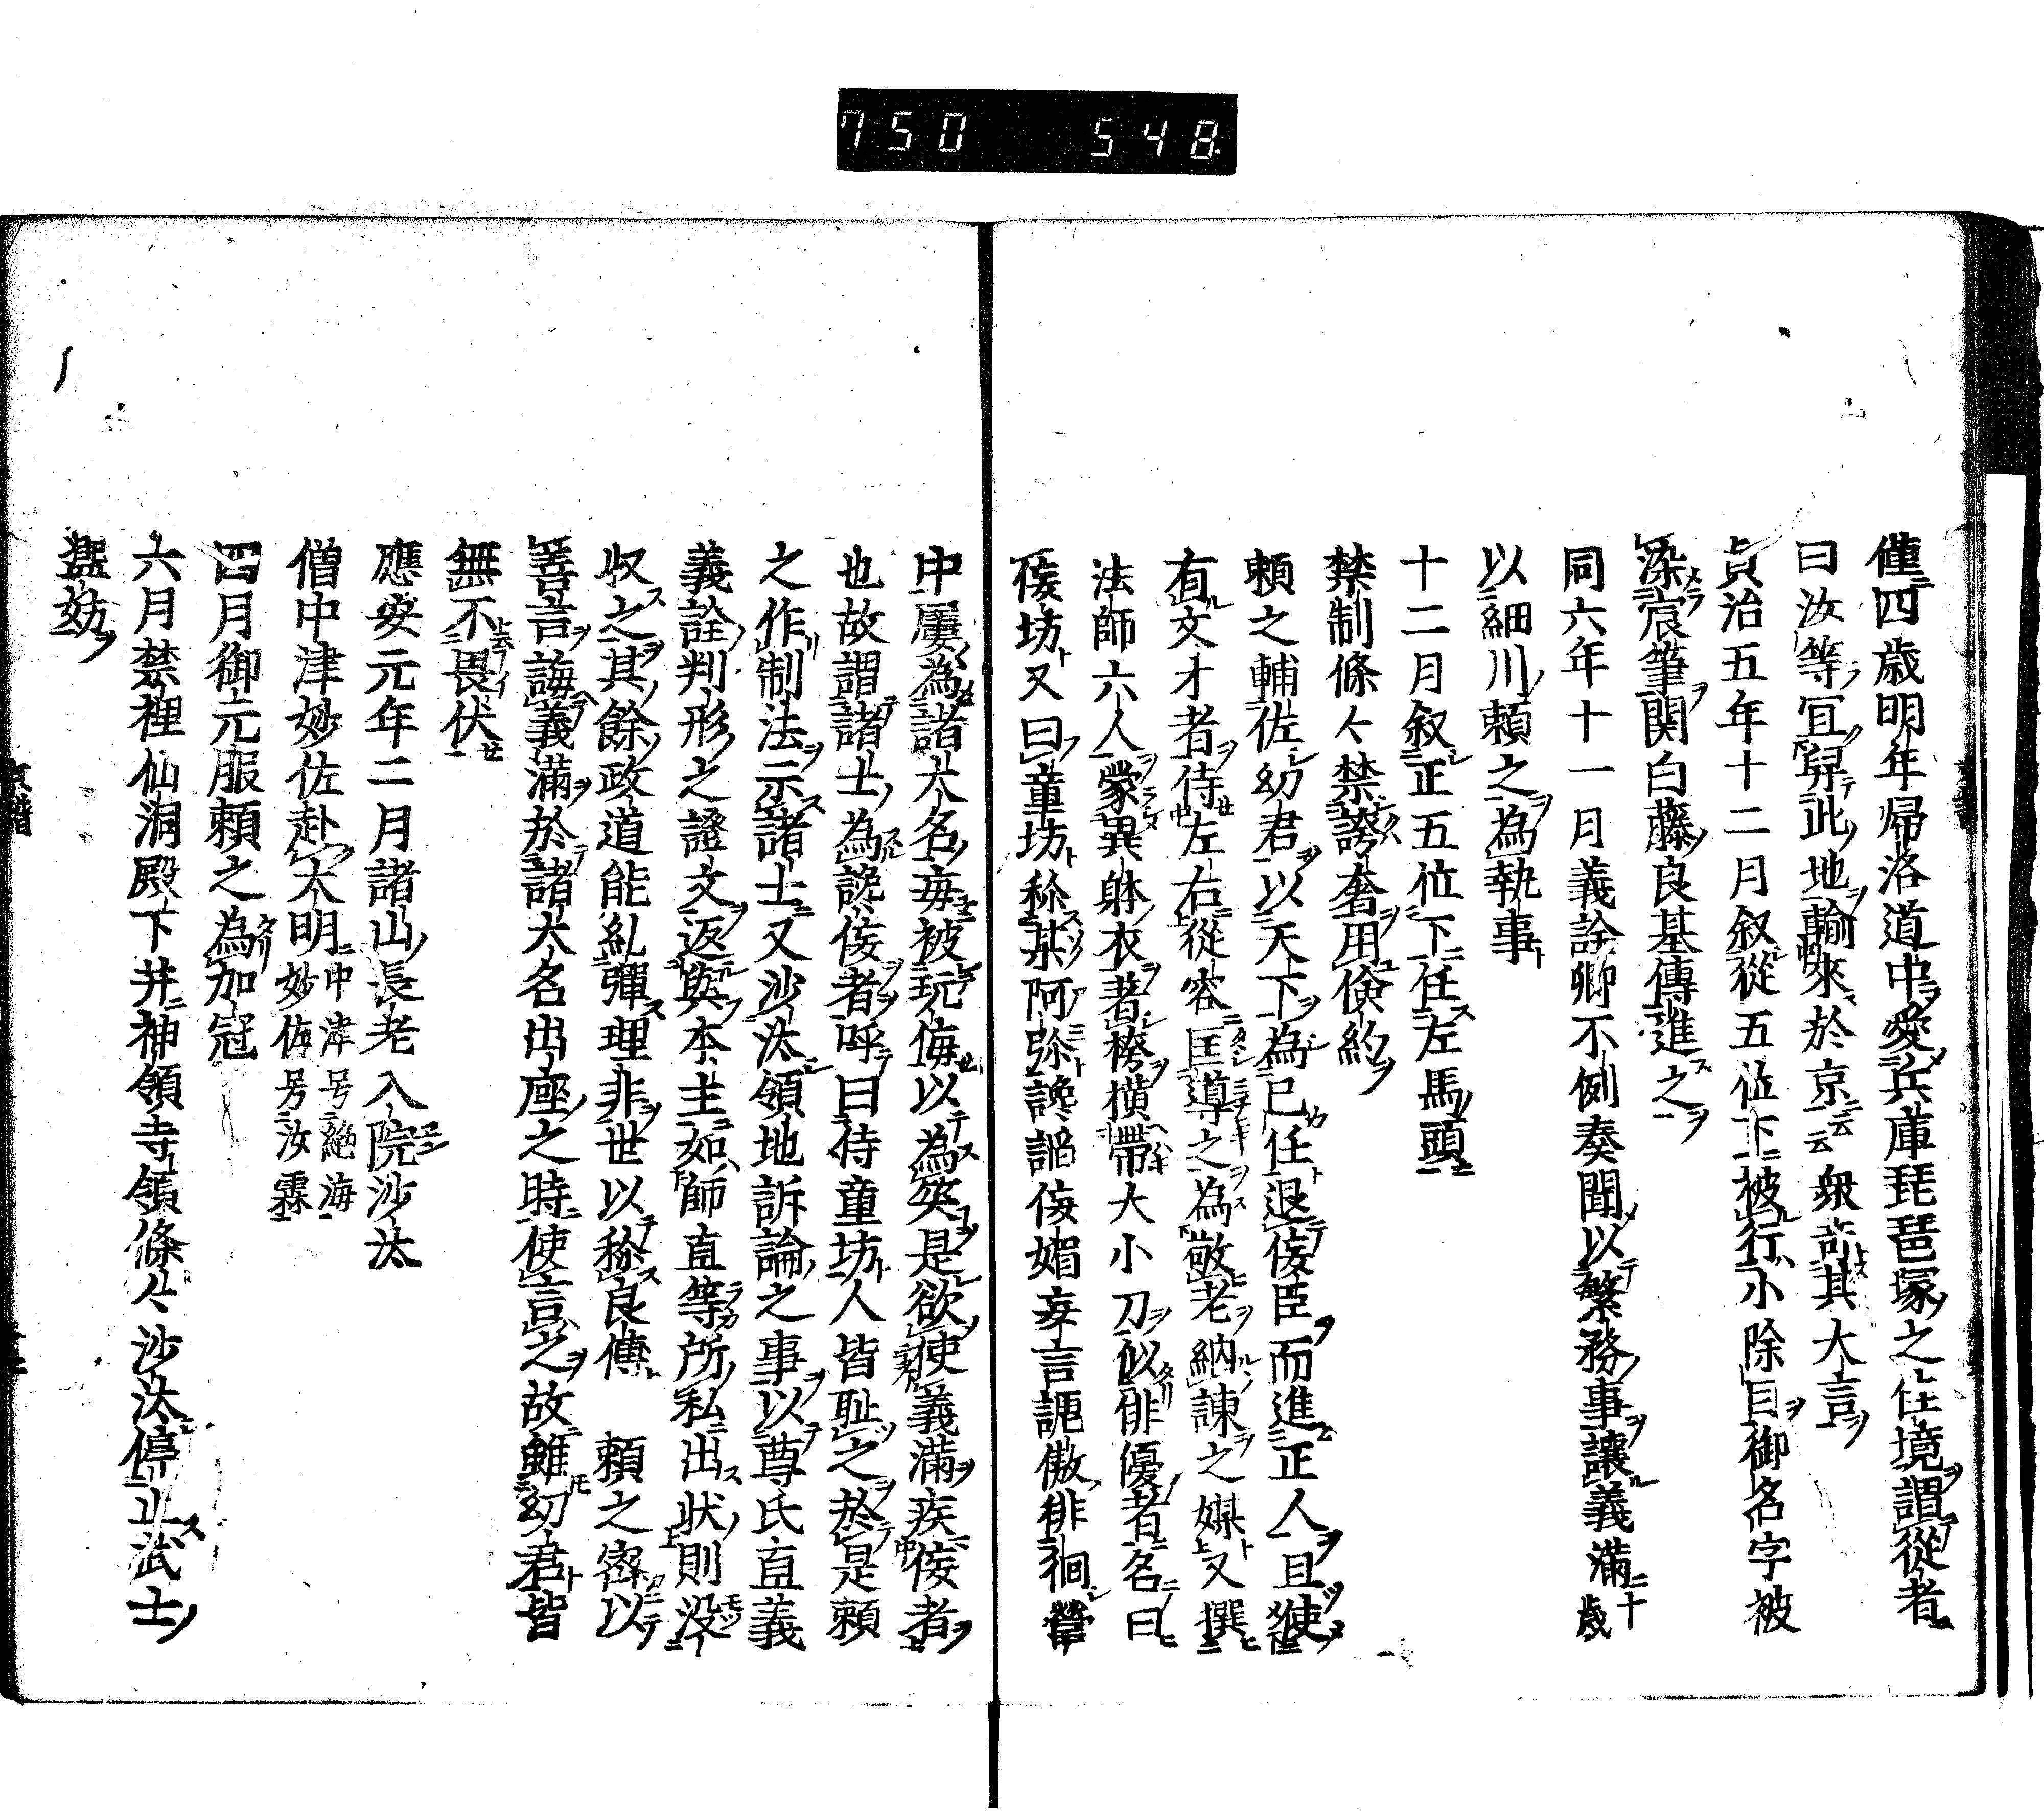 750 548
僅四歳明年帰洛道中愛兵庫琵琶塚之佳境謂從者
曰汝等冝舁此地輸來於京云云衆訝其大言
貞治五年十二月叙從五位下被行小除目御名字被
染宸筆関白藤良基傳進之
同六年十一月義詮卿不例奏聞以繁務事讓義満十歳
以細川頼之為執事
十二月叙正五位下任左馬頭
禁制條々禁誇奢用儉約
頼之輔佐幼君以天下為己任退侫臣而進正人且使
有文才者侍左右從容匡導之為敬老納諫之媒又撰
法師六人蒙異躰衣著袴横帶大小刀似俳優者名曰
侫坊又曰童坊称某阿弥讒謟侫媚妄言謾傲徘徊營
中屢為諸大名毎被玩侮以為笑是欲使義満疾侫者
也故謂諸士為讒侫者呼曰侍童坊人皆耻之於是頼
之作制法示諸士又沙汰領地訴論之事以尊氏直義
義詮判形之證文返與本主如師直等所私出状則没
収之其餘政道能糺彈理非世以称良傳 頼之密以
善言誨義満於諸大名出座之時使言之故雖幼君皆
無不畏伏
應安元年二月諸山長老入院沙汰
僧中津妙佐赴大明中津号絶海妙佐号汝霖
四月御元服頼之為加冠
六月禁裡仙洞殿下井神領寺領條々沙汰停止武士
濫妨